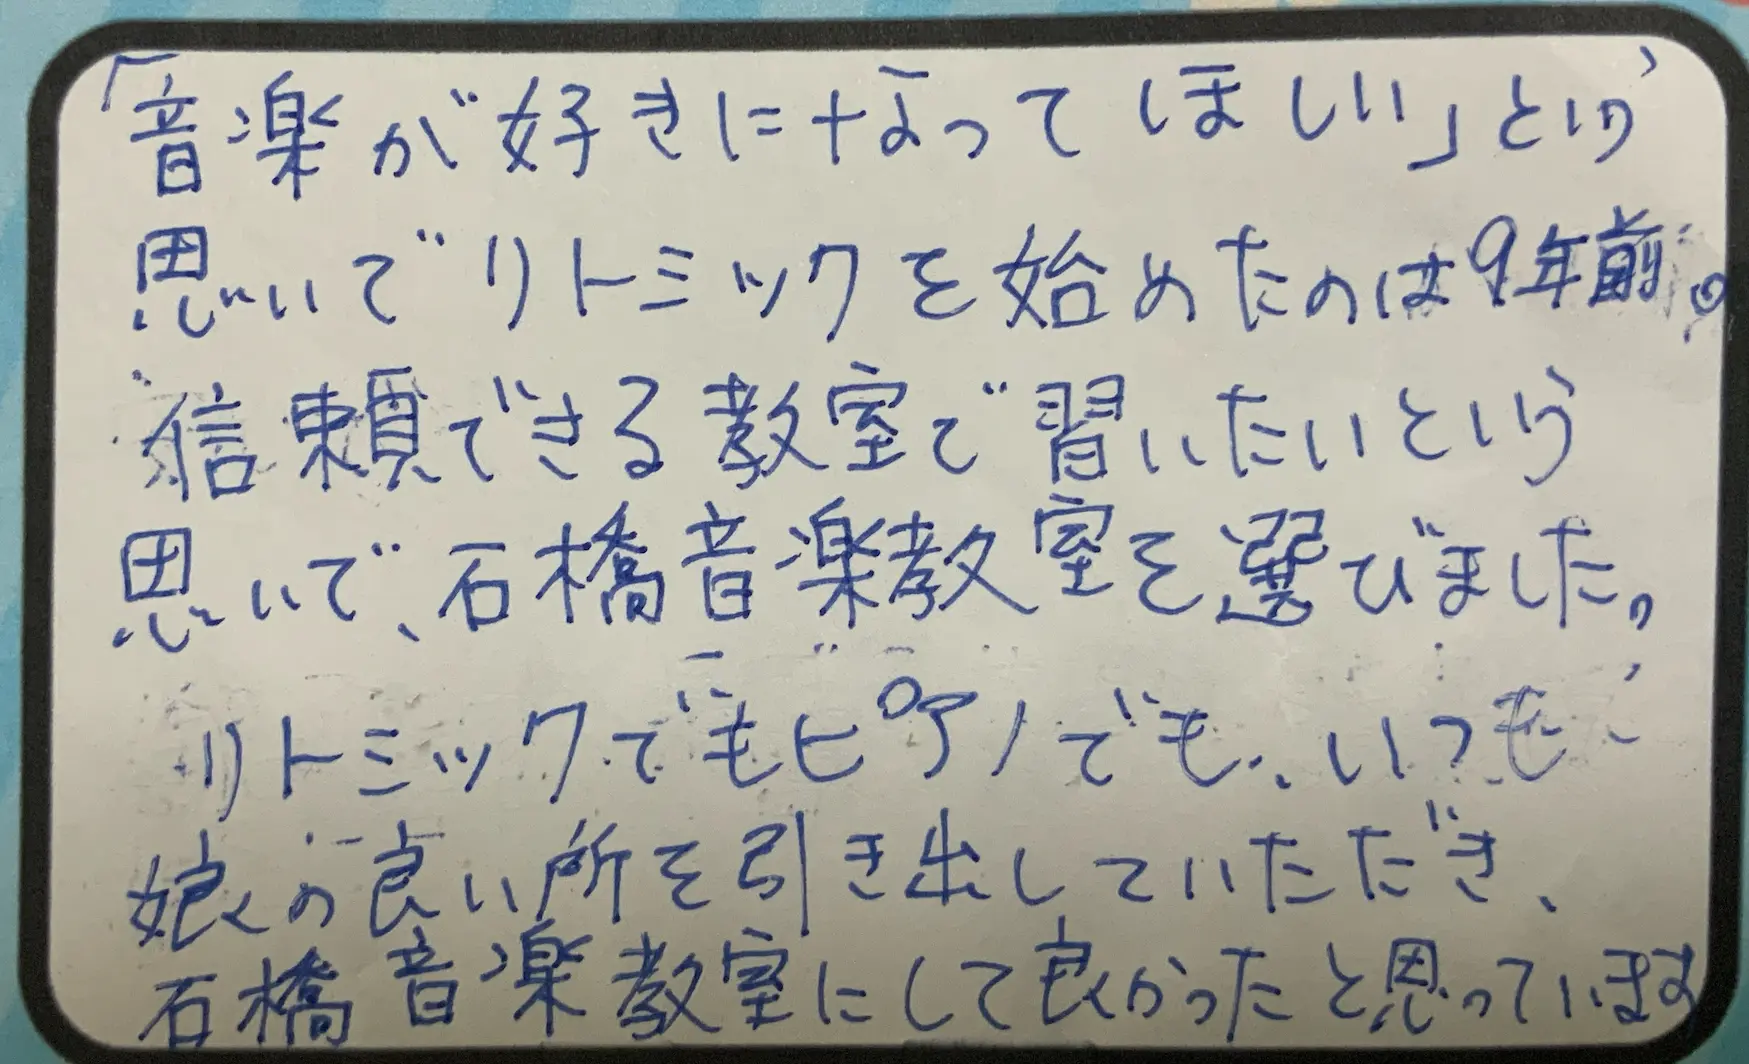 「音楽が好きになってほしい」という
思いでリトミックを始めたのは9年前。
信頼できる教室で習いたいという
思いで、石橋音楽教室を選びました。
リトミックでもピアノでも、いつも
娘の良い所を引き出していただき、
石橋音楽教室にして良かったと思っています